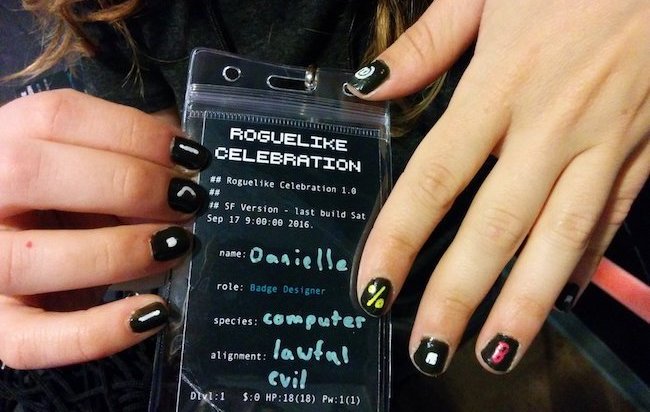 @
ROGUELIKE
CELEBRATION
## Roguelike Celebration 1.0
##
## SF Version - last build Sat
Sep 17 9:00:00 2016.
name: Danielle
role: Badge Designer
species: computer
alignment: lawful
evil
Dlvl:1 $:0 HP:18(18) Pw:1(1)
%